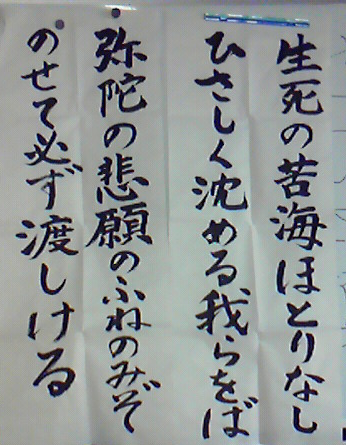 生死の苦海ほとりなし
ひさしく沈める我らをば
弥陀の悲願のふねのみぞ
のせて必ず渡しける